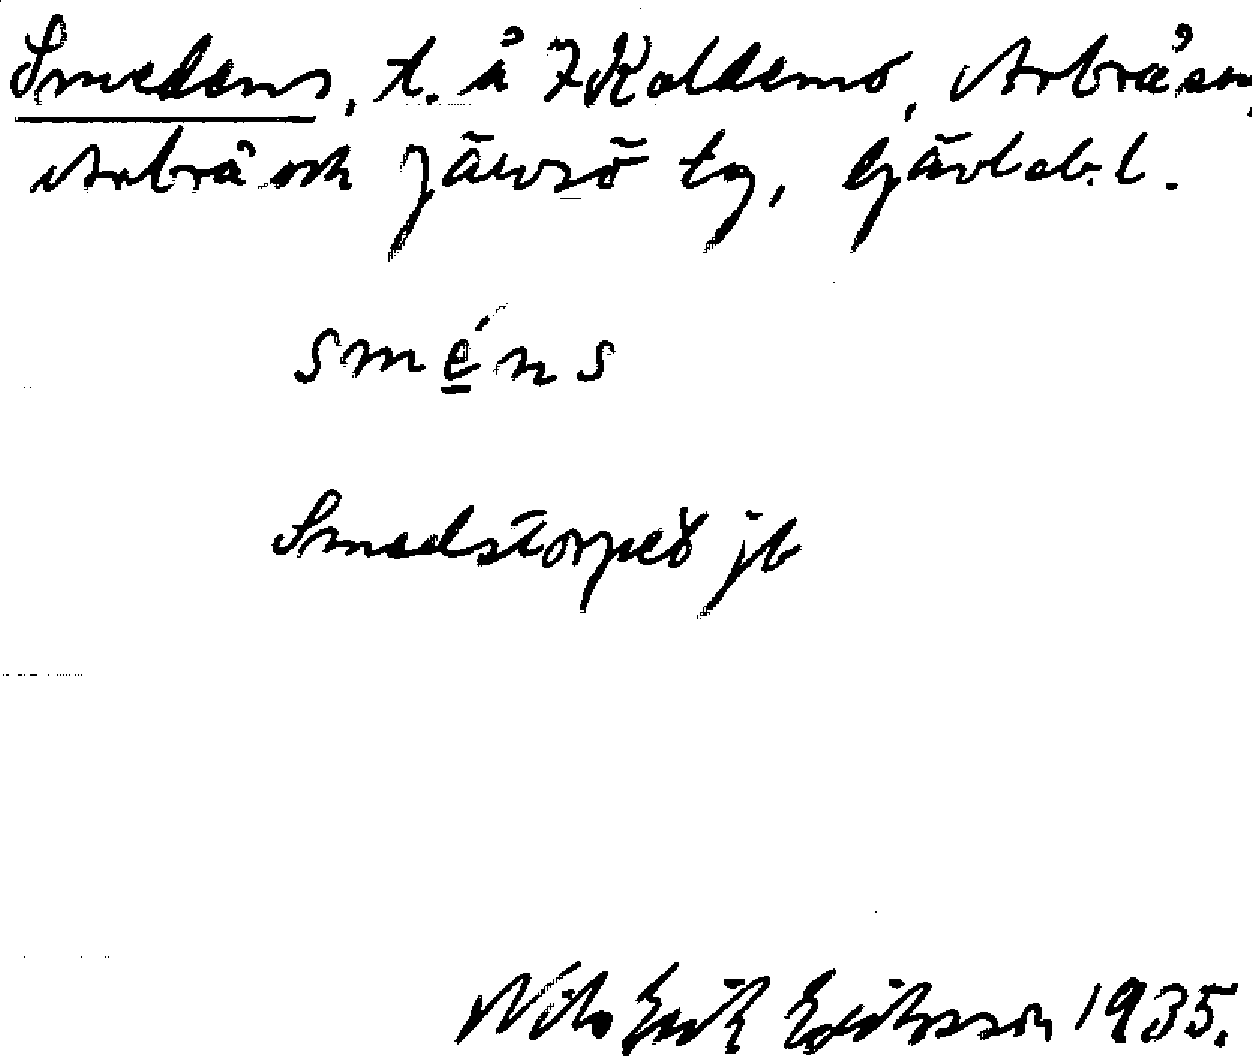 Smedens, t. å 7 Koldemo, Arbrå sn,
Arbrå och Järvsö tg, Gävleb. l.
sméns
Smedstorpet jb
Nils Erik Eriksson 1935.